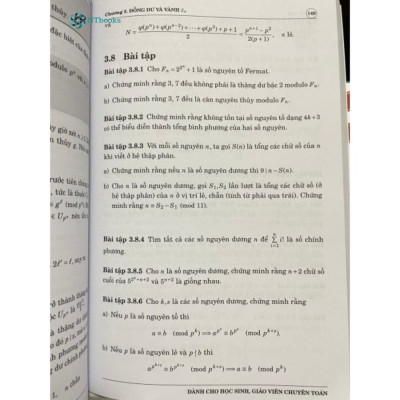 OTbooks
Chương 3. ĐỒNG DƯ VÀ VÀNH ℤₙ
149
và
N = (φ(pⁿ) + φ(pⁿ⁻²) + ⋯ + φ(p³) + p + 1)/2 = (pⁿ⁺¹ − p²)/(2(p + 1)), n lẻ.
3.8 Bài tập
Bài tập 3.8.1 Cho Fₙ = 2^{2ⁿ} + 1 là số nguyên tố Fermat.
a) Chứng minh rằng 3, 7 đều không phải là thặng dư bậc 2 modulo Fₙ.
b) Chứng minh rằng 3, 7 đều là căn nguyên thủy modulo Fₙ.
Bài tập 3.8.2 Chứng minh rằng không tồn tại số nguyên tố dạng 4k + 3
có thể biểu diễn thành tổng bình phương của hai số nguyên.
Bài tập 3.8.3 Với mỗi số nguyên n, ta gọi S(n) là tổng các chữ số của n
khi viết ở hệ thập phân.
a) Chứng minh rằng nếu n là số nguyên dương thì 9 | n − S(n).
b) Cho n là số nguyên dương, gọi S₁, S₂ lần lượt là tổng các chữ số (ở
hệ thập phân) của n ở vị trí lẻ, chẵn (tính từ phải qua trái). Chứng
minh rằng n ≡ S₂ − S₁ (mod 11).
Bài tập 3.8.4 Tìm tất cả các số nguyên dương n để ∑ᵢ₌₁ⁿ i! là số chính
phương.
Bài tập 3.8.5 Cho n là số nguyên dương, chứng minh rằng n + 2 chữ số
cuối của 5^{2ⁿ+n+2} và 5ⁿ⁺² là giống nhau.
Bài tập 3.8.6 Cho k, s là các số nguyên dương, chứng minh rằng
a) Nếu p là số nguyên tố thì
a ≡ b (mod pᵏ) ⟹ a^{pˢ} ≡ b^{pˢ} (mod pᵏ⁺ˢ).
b) Nếu p là số nguyên lẻ và p ∤ b thì
≡ (mod pᵏ⁺ˢ) ⟹ a ≡ b (mod pᵏ)
DÀNH CHO HỌC SINH, GIÁO VIÊN CHUYÊN TOÁN